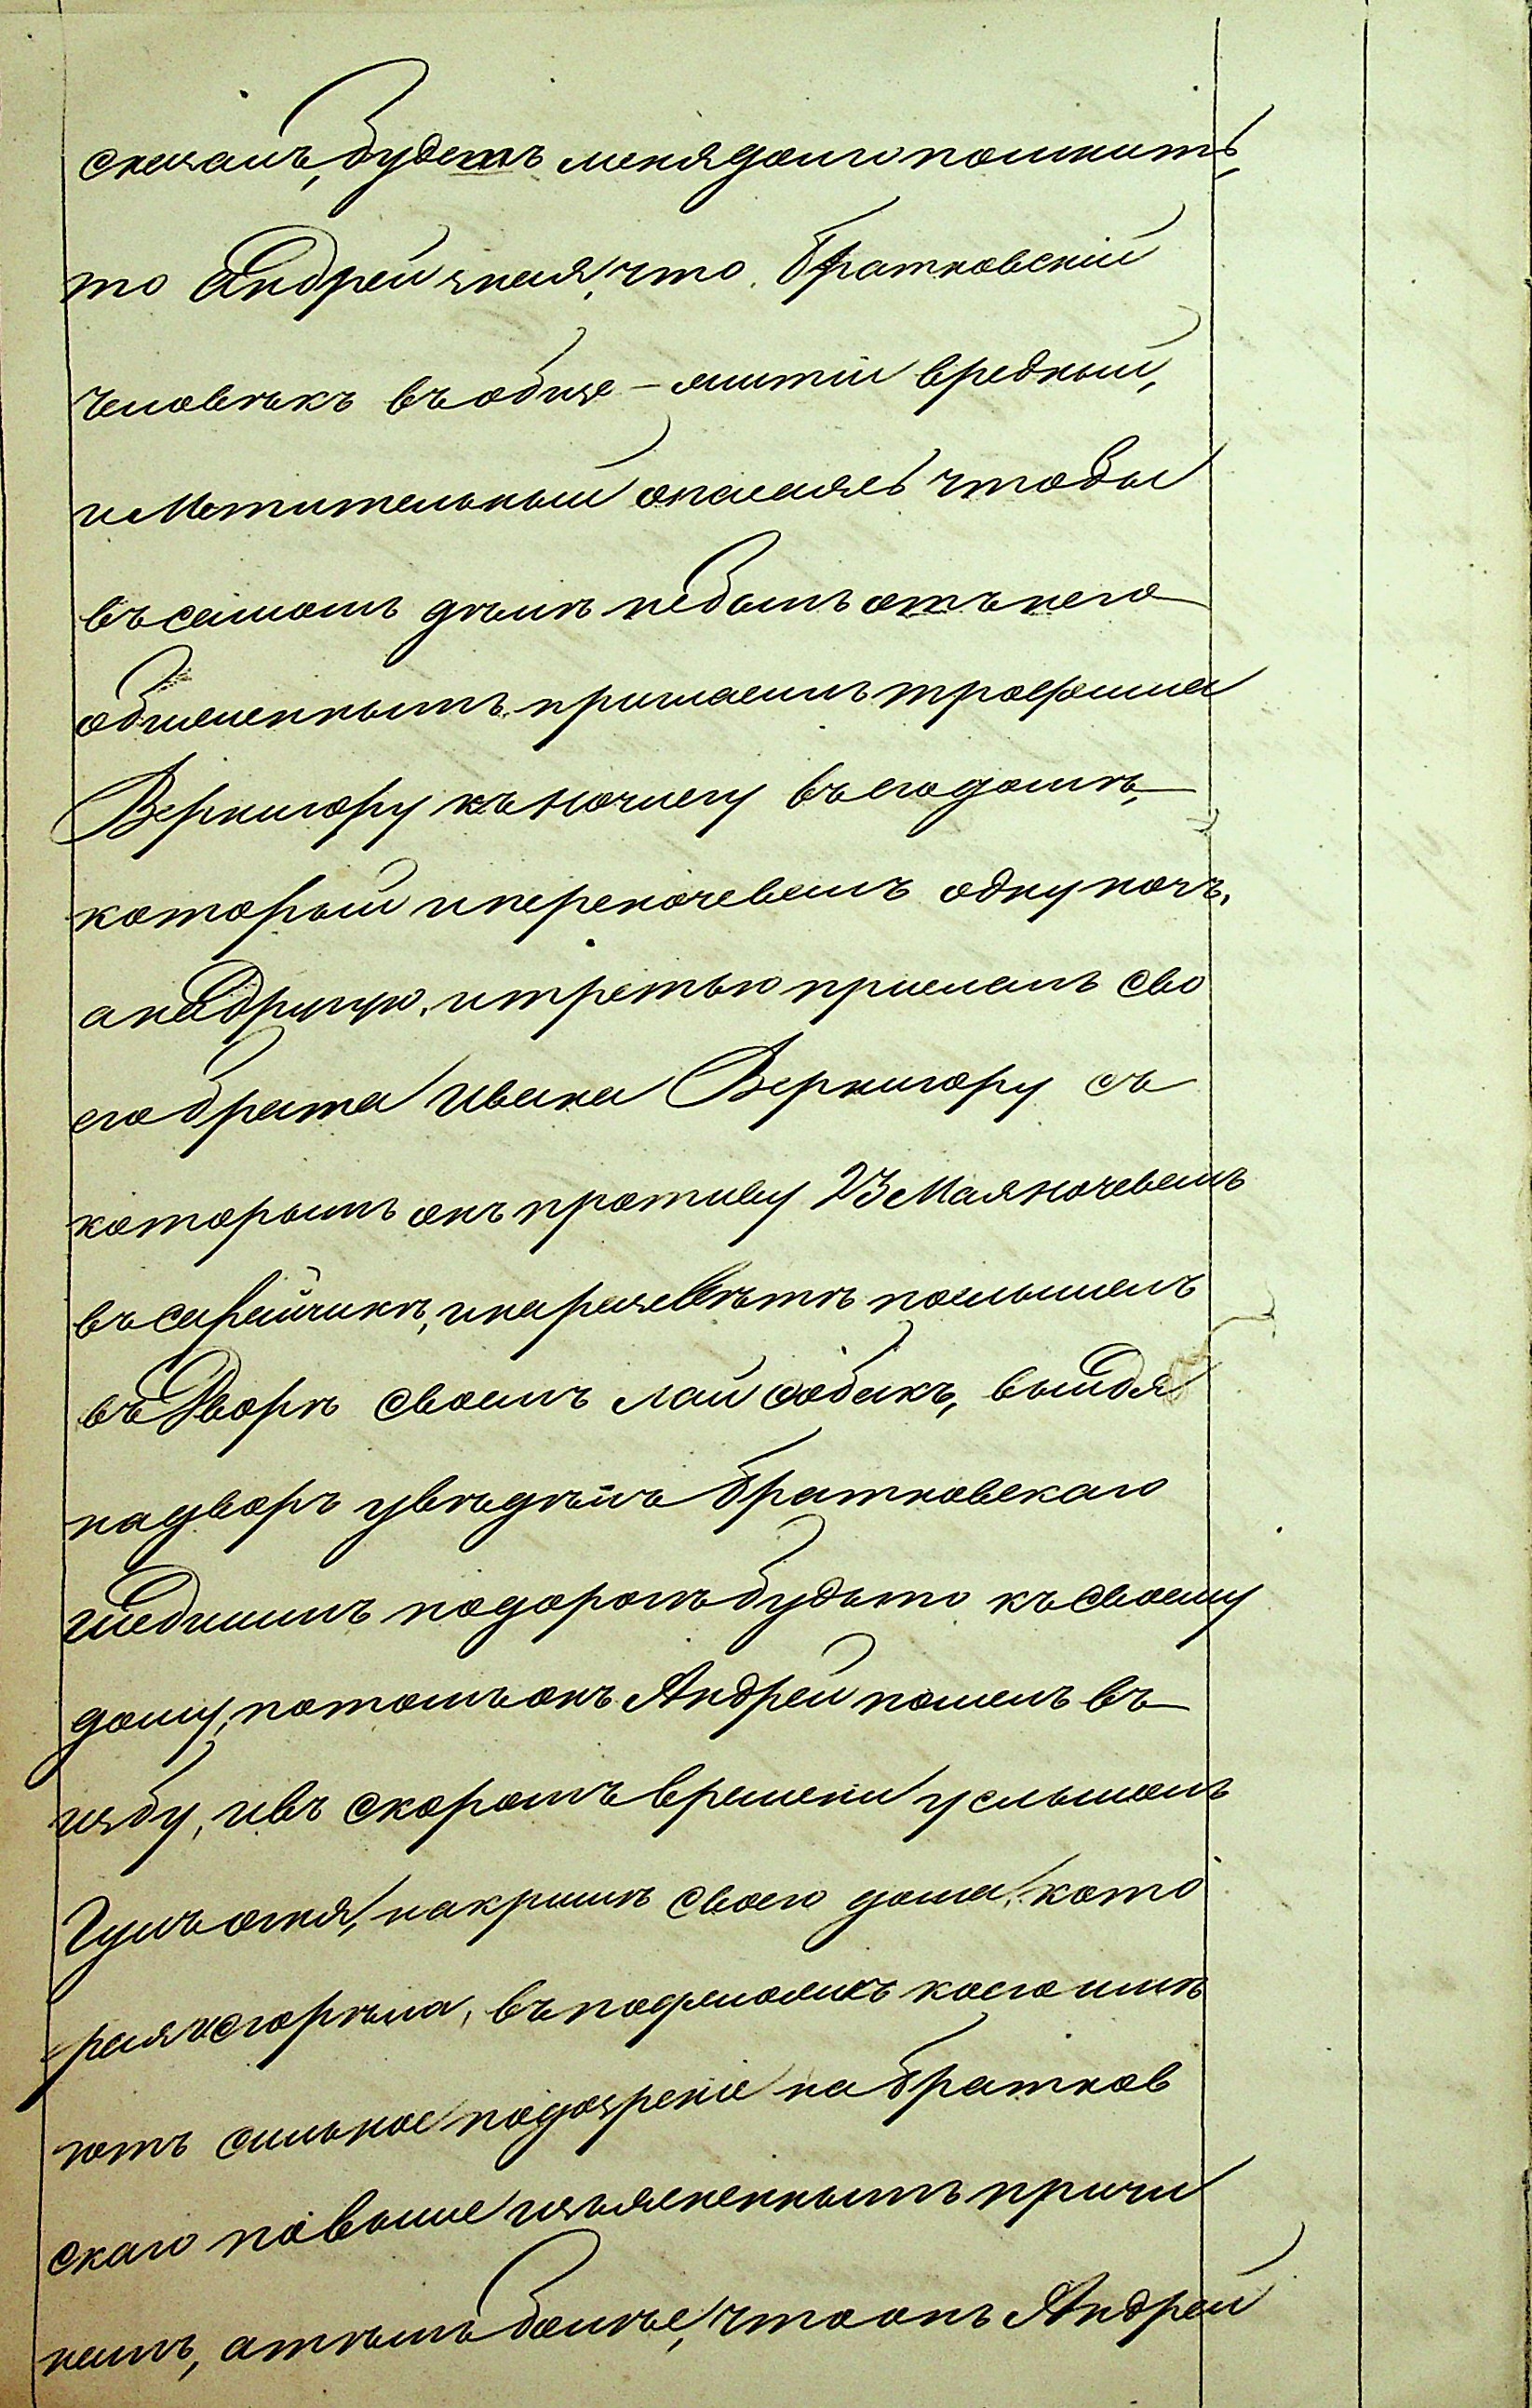 сказалъ, будетъ меня долго помнить,
то Андрей зная, что Братковскій
человѣкъ въ обще-житіи вредный,
и Мстительный опасаясь чтобы
въ самомъ дѣлѣ не былъ отъ него
обиженнымъ пригласилъ трофима
Вернигору къ ночлегу въ его домѣ,
который и переночевалъ одну ночь,
а на другую, и третью прислалъ сво
его брата Ивана Вернигору съ
которымъ онъ противу 23 Мая ночевалъ
въ сарайчикѣ, и на разсвѣтѣ послышалъ
въ Дворѣ своемъ лай собакъ, выйдя
на дворъ увѣдѣлъ Братковскаго
шедшимъ подорогѣ будьто къ своему
дому, потомъ онъ Андрей пошелъ въ
избу, и въ скоромъ времени услышалъ
Гулъ огня, на крышѣ своего дома, кото
рая и сгорѣла, въ поджогѣ коего имѣ
ютъ сильное подозреніе на Братков
скаго по выше изъясненнымъ причи
намъ, а тѣмъ болѣе, что онъ Андрей